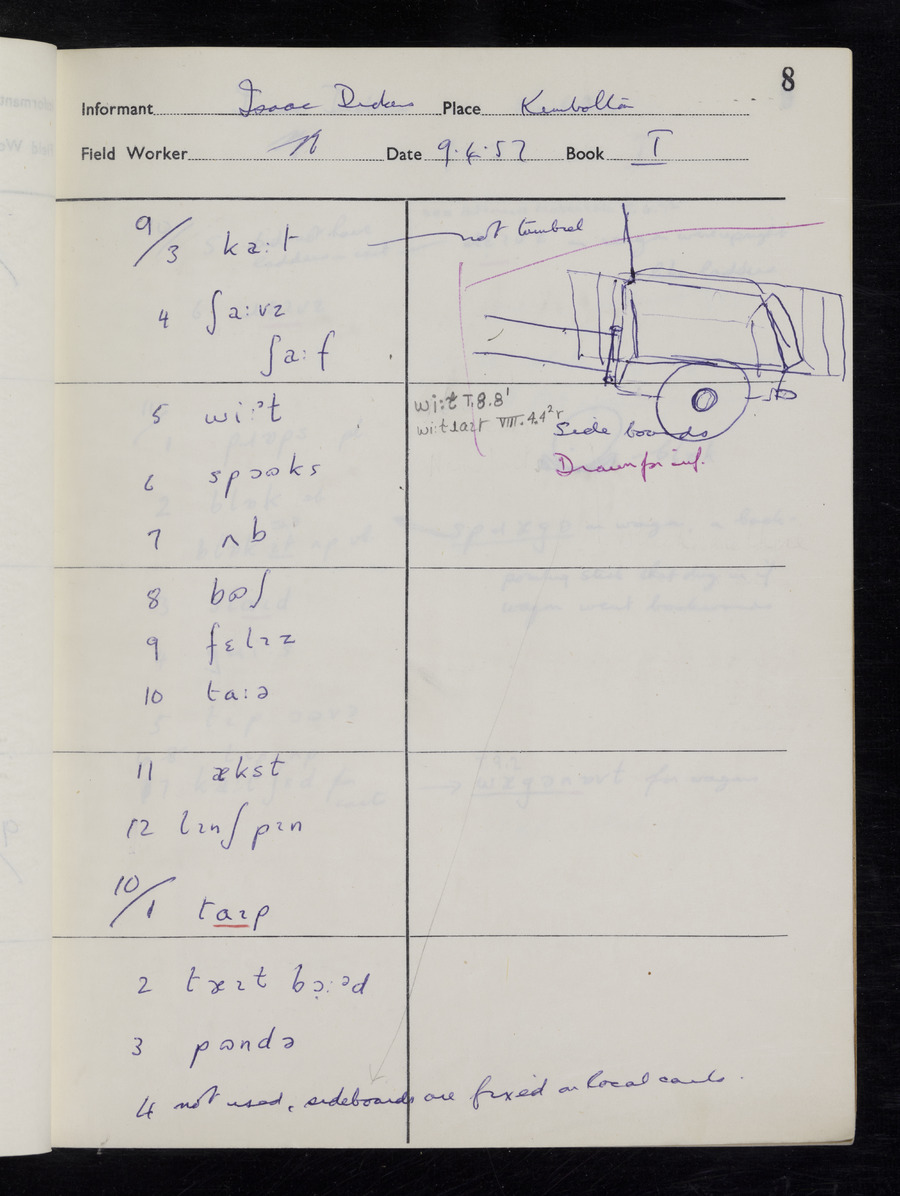 8
Informant Isaac Dickens Place Kimbolton
Field Worker N Date 9.4.57 Book I
9/3 ka:t not tumbrel
4 ʃa:vz
ʃa:f
5 wi:ᵊt wi:t I.8.8'
VIII.4.4²
Side boards
Drawn for inf.
6 spɔʊks
7 ʌb
8 bɒʃ
9 fɛlɪz
10 ta:ə
11 ækst
12 lɪnʃpɪn
10/1 taɪp
2 tæɪt bɔ:əd
3 pɒndə
4 not used, sideboards are fixed on local carts.